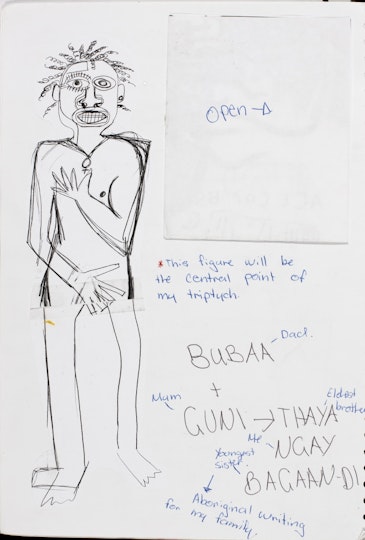 Open →
*This figure will be
the central point of
my triptych.
Dad.
BUBAA
+
Mum
Eldest
brother
GUNI → THAYA
Me
NGAY
Youngest
sister.
BAGAAN-DI
Aboriginal writing
for my family.